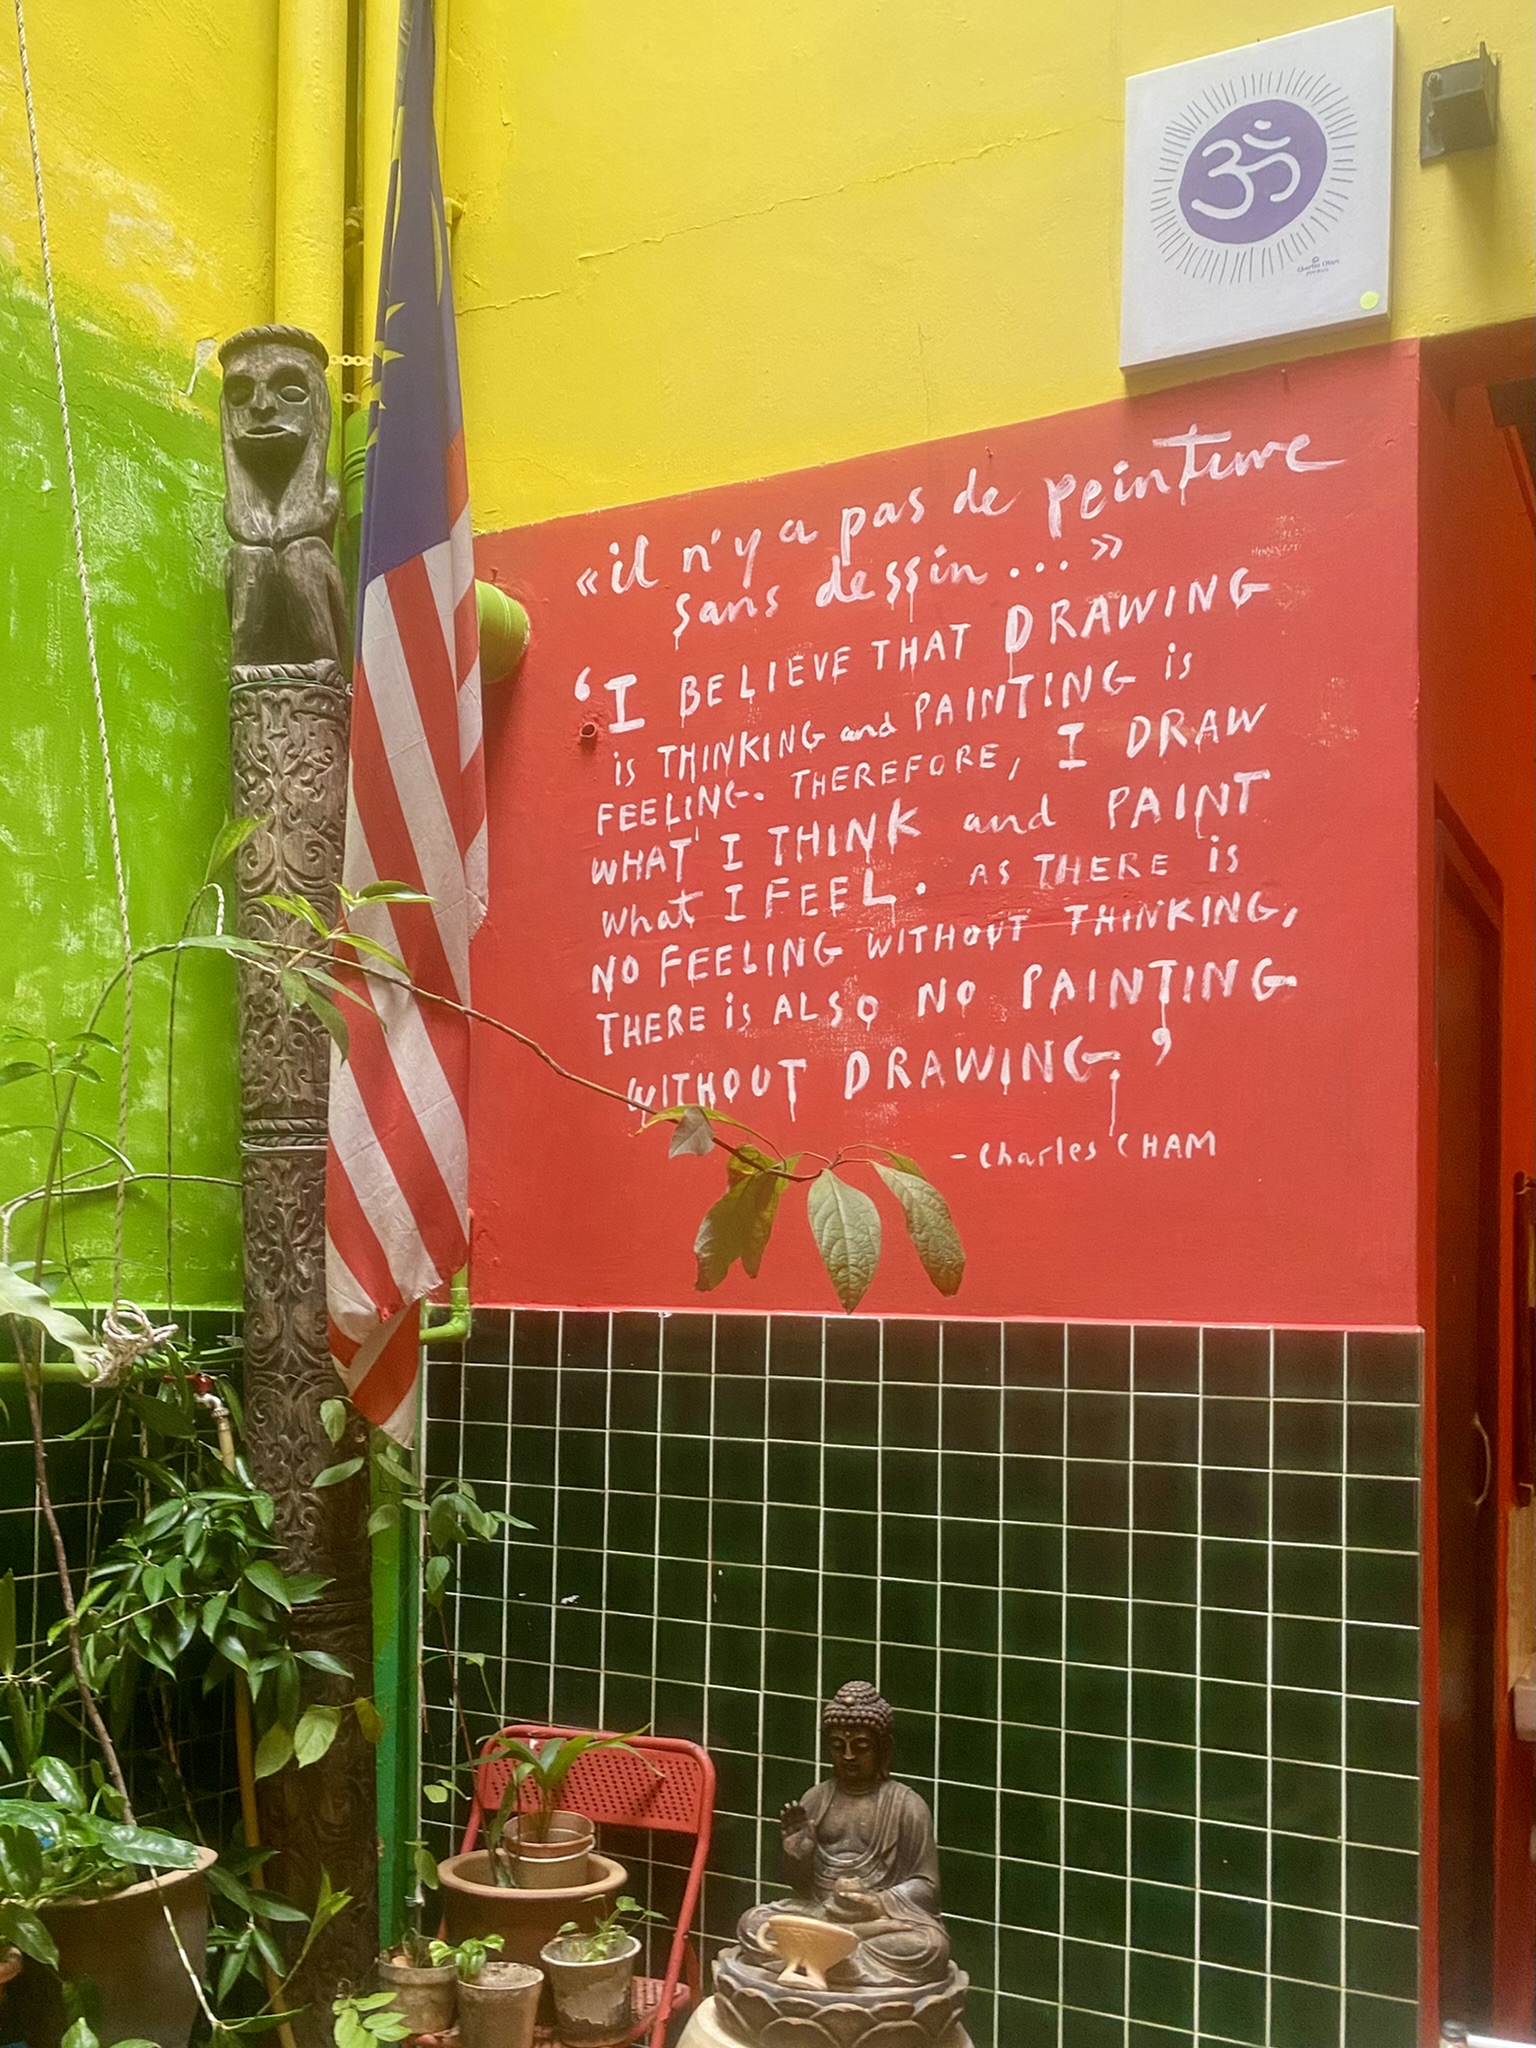 ॐ
Charles Cham
«il n'y a pas de peinture
sans dessin...»
'I BELIEVE THAT DRAWING
is THINKING and PAINTING is
FEELING. THEREFORE, I DRAW
WHAT I THINK and PAINT
what I FEEL. AS THERE is
NO FEELING WITHOUT THINKING,
THERE is ALSO NO PAINTING
WITHOUT DRAWING.'
- Charles CHAM